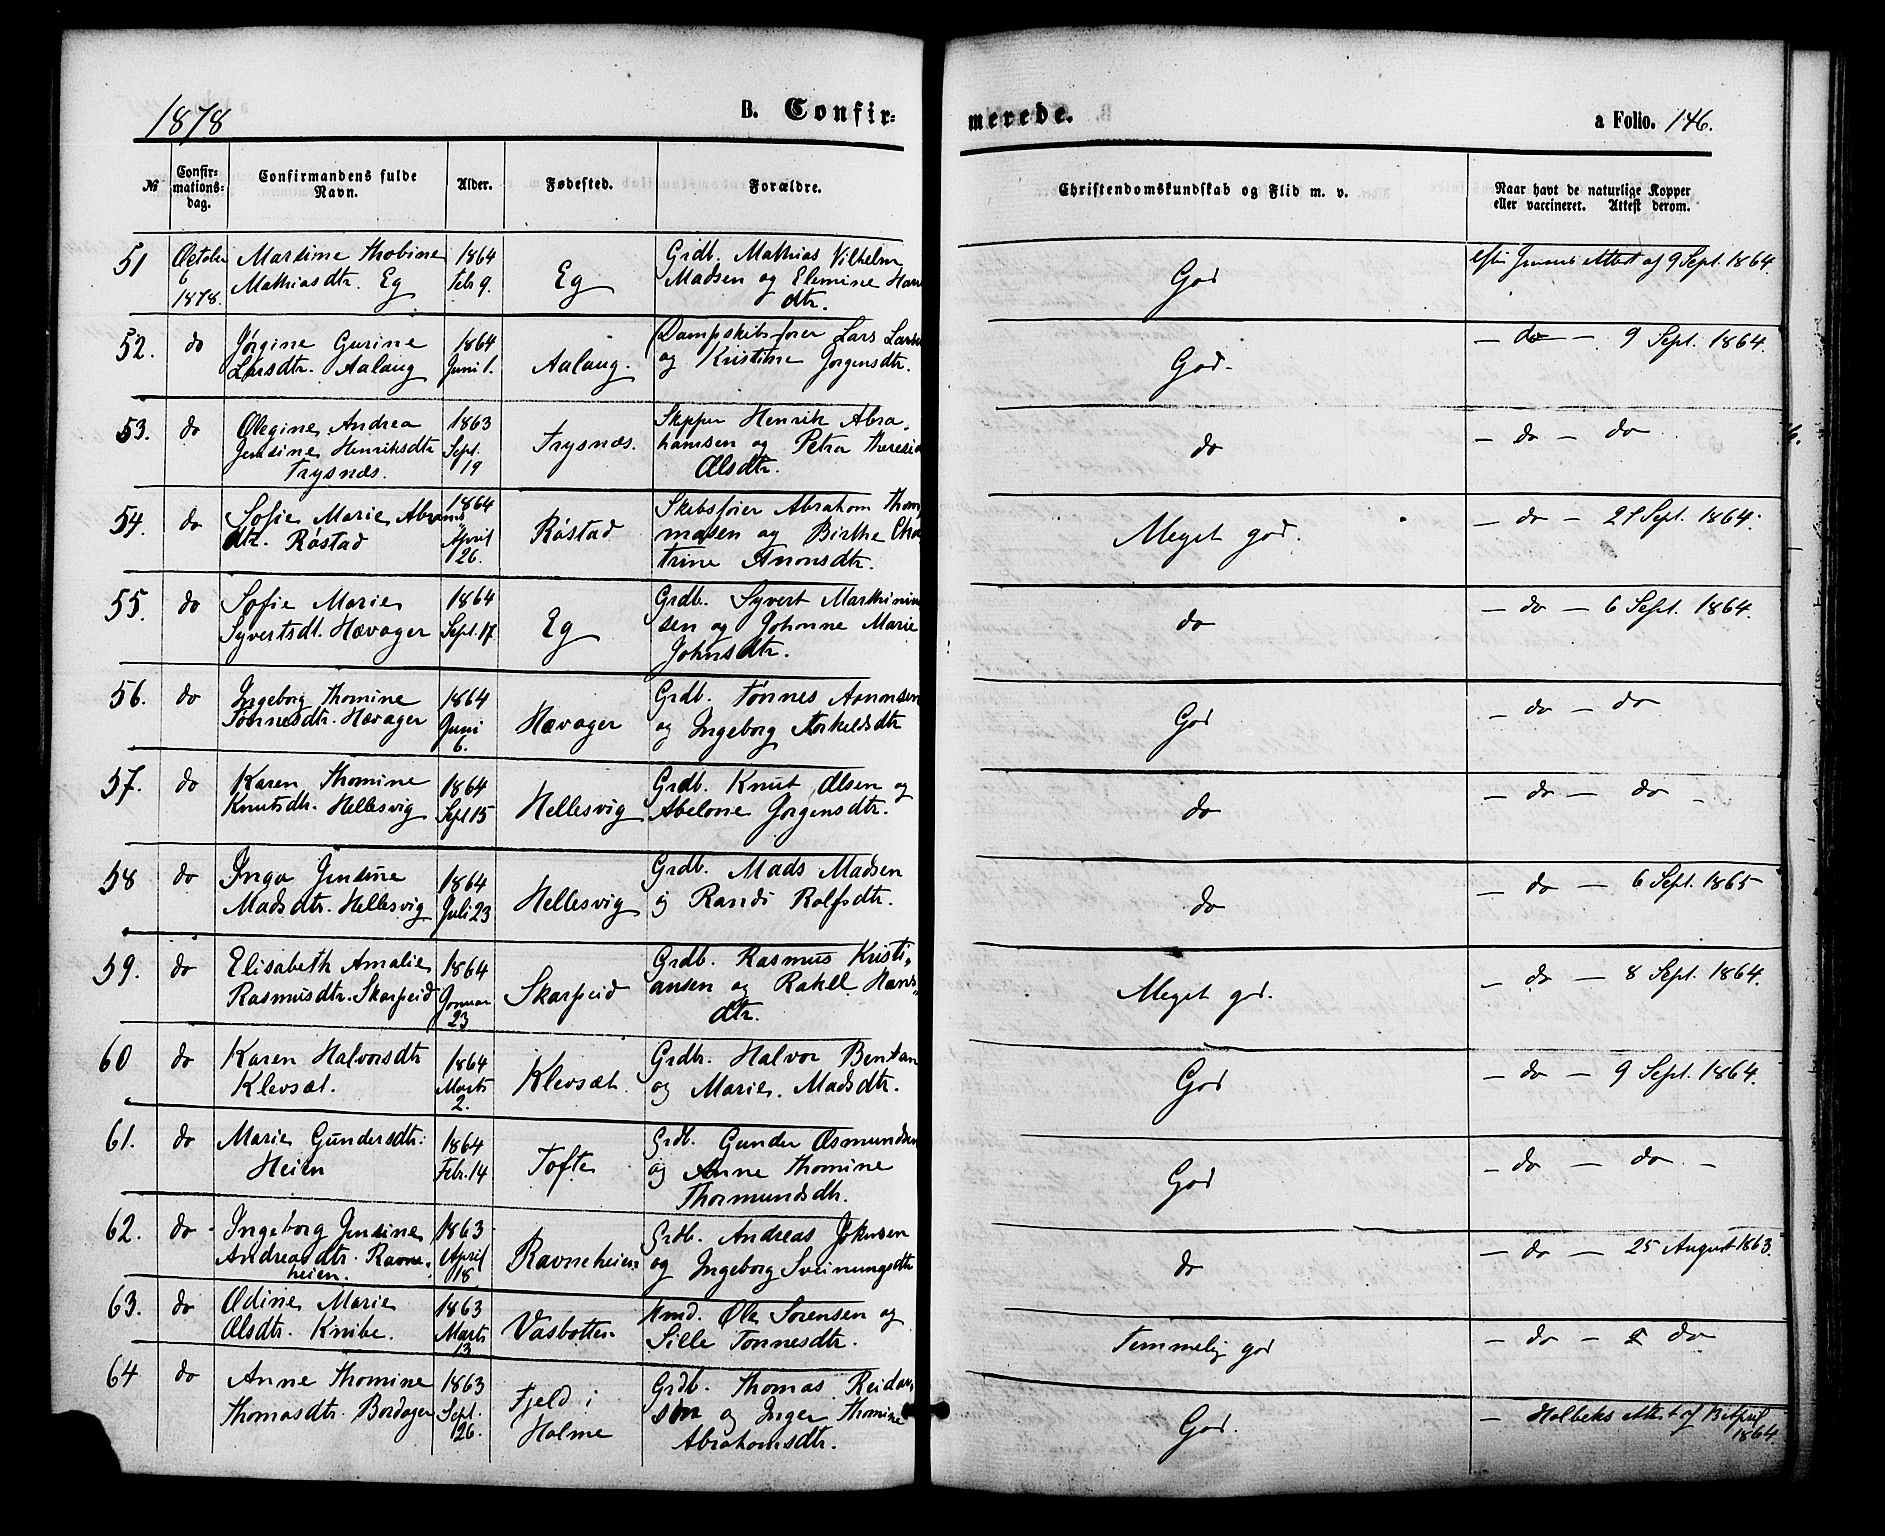 1878
B. Confir-
merede.
a Folio. 146.
№
Confir-
mations-
dag.
Confirmandens fulde
Navn.
Alder.
Fødested.
Forældre.
Christendomskundskab og Flid m. v.
Naar havt de naturlige Kopper
eller vaccineret. Attest derom.
51 October Thobine 1864 Grdb. Mathias Vilhelm
6 Mathiasdtr. Eg Febr 9. Eg Madsen og Elemine God Attest af 9 Sept. 1864.
1878. dtr.
52. do Jørgine Gurine 1864 Dampskibsfører Lars
Larsdtr. Aalaug Juni 1. Aalaug. og Kristine Jørgensdtr. God. — do — 9 Sept. 1864.
53. do Olegine Andrea 1863 Henrik Abra-
Jensine Henriksdtr Sept. Trysnæs. hamsen og Petra do — do — do
Trysnæs. 19 Olsdtr.
54. do Sofie Marie 1864 Skibsfører Abraham Thom
dtr. Røstad April Røstad masen og Birthe Meget god. — do — Sept. 1864.
26. trine Anonsdtr.
55. do Sofie Marie 1864 Grdb. Syvert
Syvertsdt. Hævager Sept. 17. Eg sen og Johanne Marie do — do — 6 Sept. 1864.
Johnsdtr.
56. do Ingeborg Thomine 1864 Grdb. Tønnes Anonsen
Tønnesdtr. Hævager Juni Hævager og Ingeborg God — do — do
6.
57. do Karen Thomine 1864 Grdb. Knut Olsen og
Knutsdtr. Hellesvig Sept 15 Hellesvig Abelone Jørgensdtr. do — do — do —
58 do Inga Jensine 1864 Grdb. Mads Madsen
Madsdtr. Hellesvig Juli 23 Hellesvig og Randi Rolfsdtr. do — do — 6 Sept. 1865
59. do Elisabeth Amalie 1864 Grdb. Rasmus Kristi-
Rasmusdtr. Skarpeid Januar Skarpeid ansen og Rakel Hans- Meget god. — do — 8 Sept. 1864.
23 dtr.
60 do Karen Halvorsdtr 1864 Grdbr. Halvor
Klevsæt. Marts Klevsæt. og Marie Madsdtr. God — do — 9 Sept. 1864.
2.
61. do Marie Gundersdtr. 1864 Grdb. Gunder Osmundsen
Heien Febr. 14 Tofte og Anne Thomine God — do — do —
Thormundsdtr.
62. do Ingeborg Jensine 1863 Grdb. Andreas
Andreasdtr. Ravne- April Ravneheien og Ingeborg Sveinungsdtr do — do — 25 August 1863.
heien. 18
63. do Odine Marie 1863 Hmd. Ole Sørensen og
Olsdtr. Knibe. Marts Vasbotten Sille Tønnesdtr. Temmelig god — do — do
13
64 do Anne Thomine 1863 Fjeld i Grdb. Thomas Reidar-
Thomasdtr. Sept. Holme sen og Inger Thomine God. — Holbeks Attest af April
26. Abrahamsdtr. 1864.